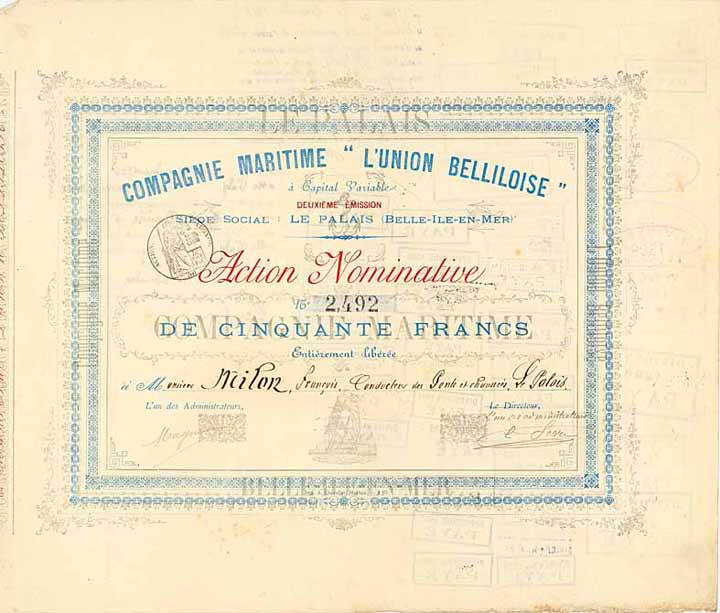 LE PALAIS
COMPAGNIE MARITIME "L'UNION BELLILOISE"
à Capital Variable
DEUXIÈME ÉMISSION
SIÈGE SOCIAL : LE PALAIS (BELLE-ILE-EN-MER)
Action Nominative
No 2,492
COMPAGNIE MARITIME
DE CINQUANTE FRANCS
Entièrement libérée
à Monsieur Milon, François, Conducteur des Ponts et chaussées, Le Palais.
L'un des Administrateurs,
Le Directeur,
BELLE-ILE-EN-MER